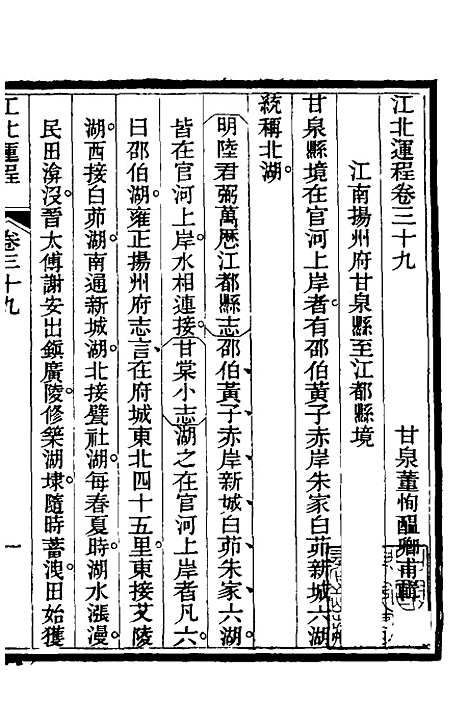 江北運程卷三十九
甘泉董恂醞卿甫輯
江南揚州府甘泉縣至江都縣境
甘泉縣境在官河上岸者有邵伯黃子赤岸朱家白茆新城六湖
統稱北湖
明陸君弼萬厯江都縣志邵伯黃子赤岸新城白茆朱家六湖
皆在官河上岸水相連接甘棠小志湖之在官河上岸者凡六
曰邵伯湖雍正揚州府志言在府城東北四十五里東接艾陵
湖西接白茆湖南通新城湖北接甓社湖每春夏時湖水漲漫
民田渰沒晉太傅謝安出鎮廣陵修築湖埭隨時蓄洩田始獲
江北運程
卷三十九
一